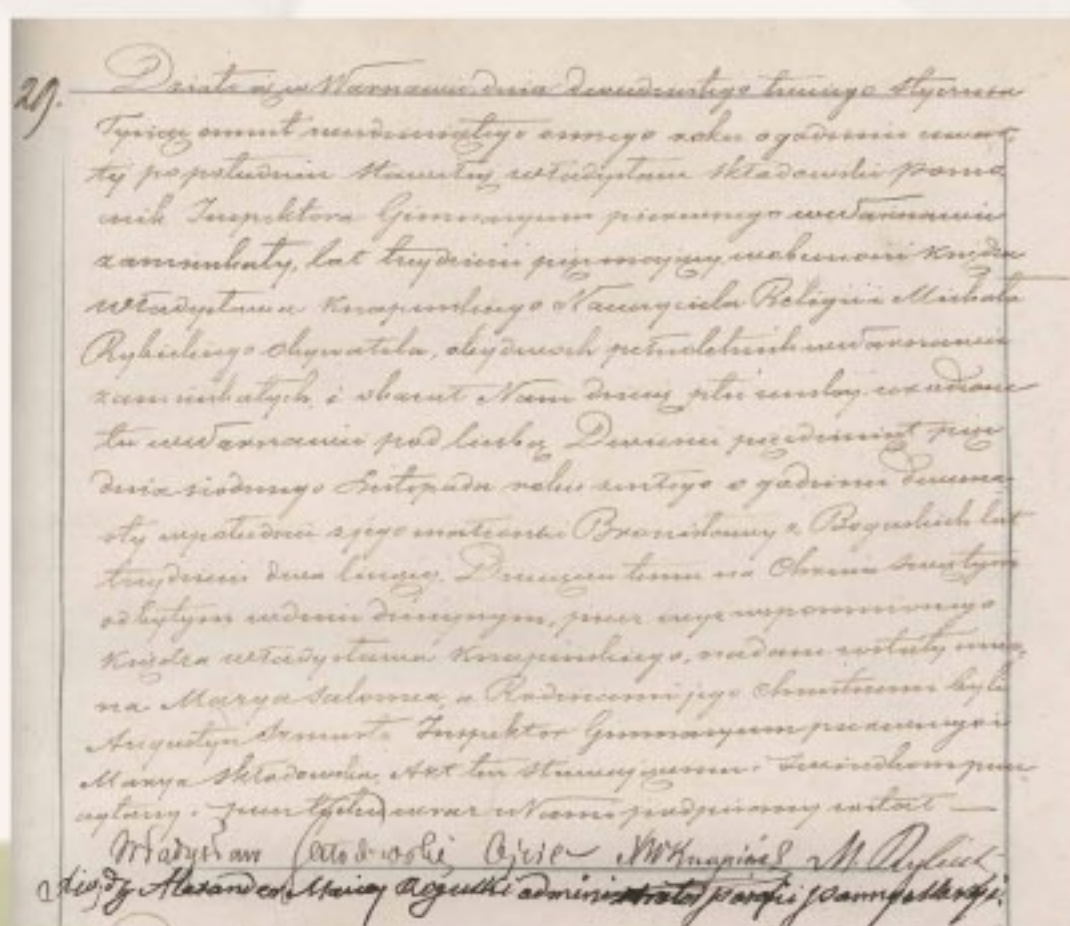 29.
Działo się w Warszawie dnia dwudziestego trzeciego Stycznia
Tysiąc ośmset sześćdziesiątego ósmego roku o godzinie czwar-
tej po południu Stawił się Władysław Skłodowski Pomo
cnik Inspektora Gimnazyum pierwszego w Warszawie
zamieszkały, lat trzydzieści pięć mający w obecności Księdza
Władysława Knapińskiego Nauczyciela Religii i Michała
Rybickiego obywatela, obydwóch pełnoletnich w Warszawie
zamieszkałych i okazał Nam dziecię płci żeńskiej urodzone
tu w Warszawie pod liczbą Dwieście pięćdziesiąt pięć
dnia siódmego Listopada roku zeszłego o godzinie dwuna-
stej w południe z jego małżonki Bronisławy z Boguskich lat
trzydzieści dwa liczącej. Dziecięciu temu na Chrzcie Świętym
odbytym w dniu dzisiejszym, przez wyż wspomnionego
Księdza Władysława Knapińskiego, nadane zostały imio-
na Marya Salomea, a Rodzicami jego Chrzestnemi byli
Augustyn Szmurło Inspektor Gimnazyum pierwszego i
Marya Skłodowska. Akt ten Stawającemu i Świadkom prze
czytany, przez tychże wraz z Nami podpisany został —
Władysław Skłodowski Ojciec XWKnapiński M. Rybicki
Ksiądz Alexander Maciej Rogulski administrator parafii Panny Maryi.